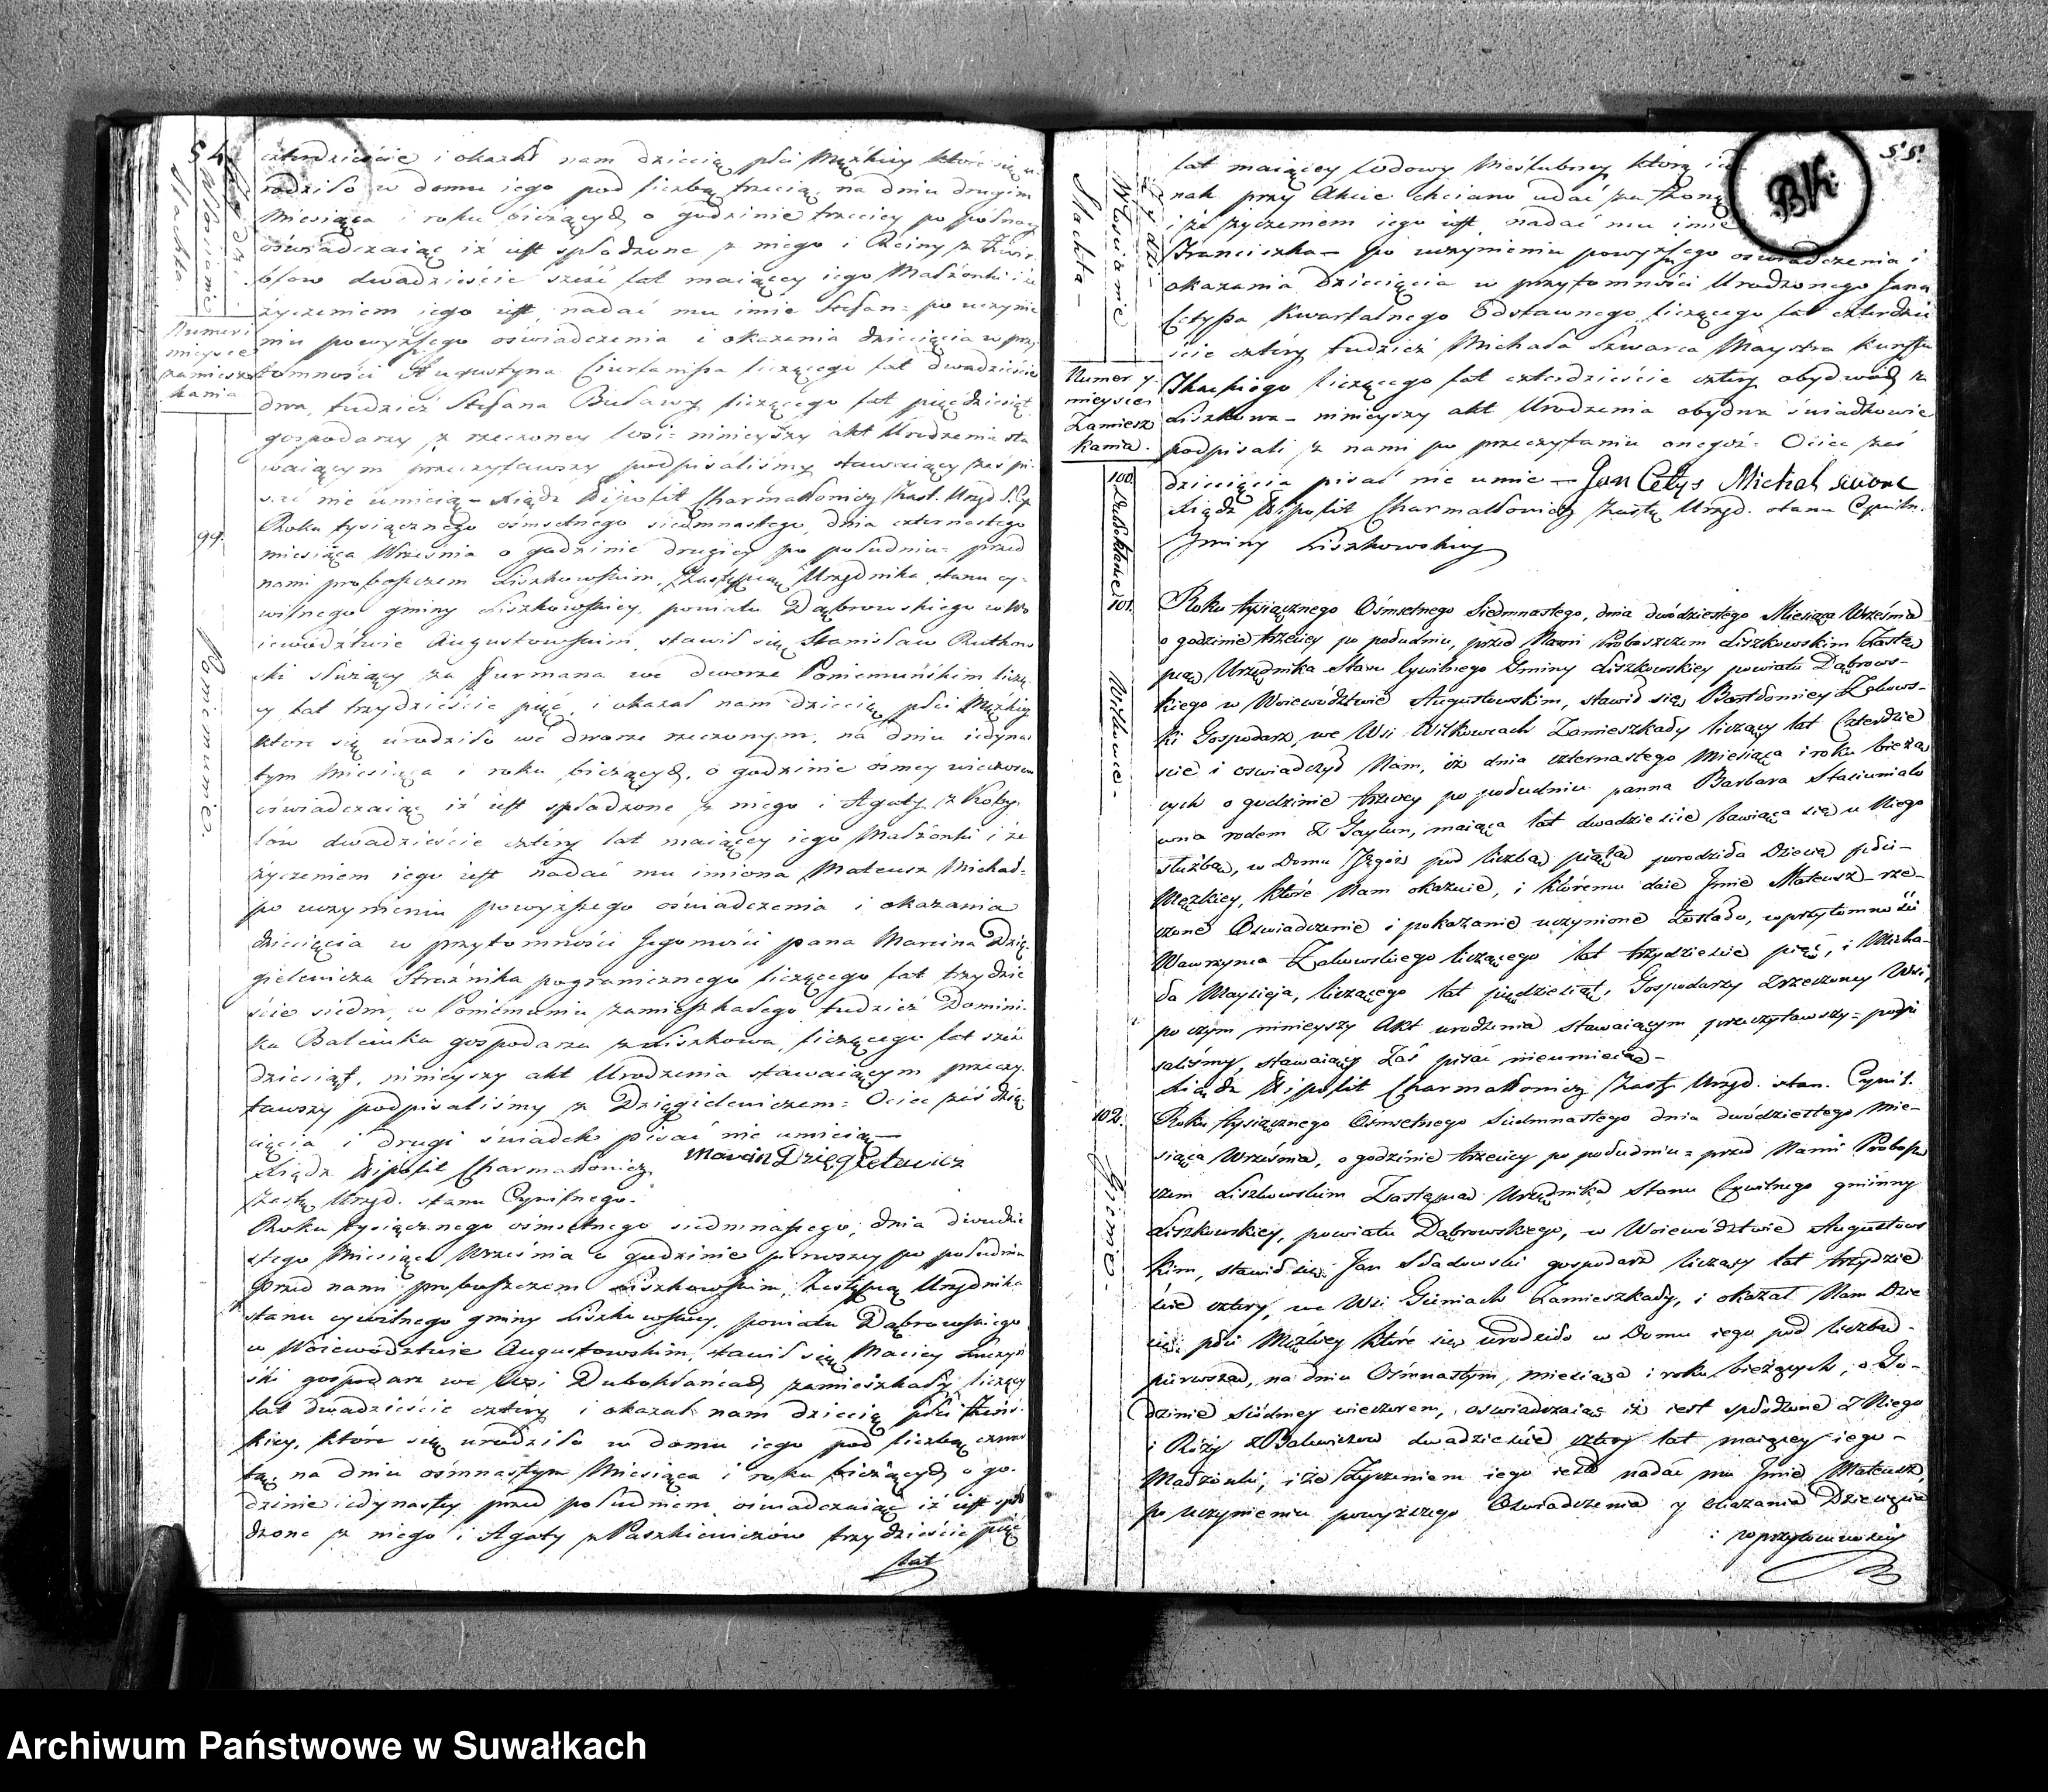 54
Szlachta
Włościanie
Żydzi
Numer i
mieysce
zamiesz
kania
czterdzieście i okazał nam dziecię płci Męzkiey które się u-
rodziło w domu iego pod liczbą trzecią, na dniu drugim
Miesiąca i roku bieżących o godzinie trzeciey po północy
oświadczaiąc iż iest spłodzone z niego i
dwadzieście sześć lat maiącey iego Małżonki i że
życzeniem iego iest nadać mu imie Stefan = po uczynie
niu powyższego oświadczenia i okazania dziecięcia w przy
tomności Augustyna liczącego lat dwadzieście
dwa, tudzież Stefana Buławy liczącego lat pięćdziesiąt
gospodarzy z rzeczoney wsi = ninieyszy akt Urodzenia sta
waiącym przeczytawszy podpisaliśmy, stawaiący zaś pi-
sać nie umieią – Xiądz Hipolit Zast. Urzęd. S. Cy
99.
Poniemunie.
Roku tysiącznego ośmsetnego siedmnastego, dnia czternastego
miesiąca Września o godzinie drugiey po południu = przed
nami proboszczem Liszkowskim, Zastępcą Urzędnika stanu cy-
wilnego gminy Liszkowskiey, powiatu Dąbrowskiego w Wo
iewództwie Augustowskim, stawił się Stanisław Rutkow
ski służący za Furmana we dworze Poniemuńskim liczą
cy lat trzydzieście pięć, i okazał nam dziecię płci Męzkiey
które się urodziło we dworze rzeczonym, na dniu iedyna
tym Miesiąca i roku bieżących, o godzinie ósmey wieczorem
oświadczaiąc iż iest spłodzone z niego i Agaty z Koby-
łów dwadzieście cztery lat maiącey iego Małżonki i że
życzeniem iego iest nadać mu imiona Mateusz Michał =
po uczynieniu powyższego oświadczenia i okazania
dziecięcia w przytomności Jegomości pana Marcina Dzię-
gielewicza Strażnika pogranicznego liczącego lat trzydzie
ście siedm, w Poniemuniu zamieszkałego tudzież Domini-
ka Balciuka gospodarza z Liszkowa, liczącego lat sześć
dziesiąt, ninieyszy akt Urodzenia stawaiącym przeczy-
tawszy podpisaliśmy z Dzięgielewiczem = Ociec zaś dzie
cięcia i drugi świadek pisać nie umieią –
Xiądz Hipolit Marcin Dzięgielewicz
Zastę. Urzęd. stanu Cywilnego.
Roku tysiącznego ośmsetnego siedmnastego, dnia dwudzie
stego Miesiąca Września o godzinie pierwszey po południu
przed nami proboszczem Liszkowskim, Zastępcą Urzędnika
stanu cywilnego gminy Liszkowskiey, powiatu Dąbrowskiego
w Woiewództwie Augustowskim, stawił się Maciey
ski gospodarz we Wsi Dubokłańcach zamieszkały, liczący
lat dwadzieście cztery i okazał nam dziecię płci Żeńs-
kiey, które się urodziło w domu iego pod liczbą czwar
tą, na dniu ośmnastym Miesiąca i roku bieżących o go-
dzinie iedynastey przed południem, oświadczaiąc iż iest spło
dzone z niego i Agaty z Paszkiewiczów trzydzieście pięć
lat
55.
BK
Szlachta –
Włościanie
Żydzi –
Numer y
mieysce
Zamiesz
kania.
100.
lat maiącey wdowy Nieślubney którą ied
nak przy Akcie chciano udać za żonę
i że życzeniem iego iest nadać mu imie
Franciszka – po uczynieniu powyższego oświadczenia i
okazania dziecięcia w przytomności Urodzonego Jana
Cetysa Kwartalnego Odstawnego liczącego lat czterdzie
ście cztery tudzież Michała Szwarca Maystra kunsztu
Tkackiego liczącego lat czterdzieście cztery obydwóch z
Liszkowa – ninieyszy akt Urodzenia obydwa świadkowie
podpisali z nami po przeczytaniu onegoż. Ociec zaś
dziecięcia pisać nie umie – Jan Cetys Michał
Xiądz Hipolit Zastę Urzęd. stanu Cywiln.
Gminy Liszkowskiey
101.
Witkowce –
Roku tysiącznego Ośmsetnego Siedmnastego, dnia dwódziestego Miesiąca Września
o godzinie trzeciey po południu, przed Nami Proboszczem Liszkowskim Zastę
pcą Urzędnika Stanu Cywilnego Gminy Liszkowskiey powiatu Dąbrows-
kiego w Woiewództwie Augustowskim, stawił się Bartłomiey Zakows-
ki Gospodarz, we Wsi Witkowcach Zamieszkały liczący lat Czterdzie
ście i oswiadczył Nam, iż dnia czternastego Miesiąca i roku bieżą
cych o godzinie trzeciey po południu panna Barbara Stasiunialo
wna rodem z Gaylun, maiąca lat dwadzieście bawiąca się u Niego
służbą, w Domu Jegoż pod liczbą piątą porodziła Dziecię płci –
Męzkiey, które Nam okazuie, i któremu daie Imie Mateusz – rze-
czone Oświadczenie i pokazanie uczynione Zostało, w przytomności
Wawrzynca Zakowskiego liczącego lat trzydzieście pięć, i Micha-
ła liczącego lat pięćdziesiąt, Gospodarzy z rzeczoney Wsi,
po czym ninieyszy Akt urodzenia stawaiącym przeczytawszy = podpi
saliśmy, stawaiący Zaś pisać nieumieią –
Xiądz Hipolit Zast. Urzęd. stan. Cywil.
102.
Gienie –
Roku tysiącznego Ośmsetnego Siedmnastego dnia dwódziestego Mie-
siąca Września, o godzinie trzeciey po południu = przed Nami Probosz
czem Liszkowskim Zastępcą Urzędnika Stanu Cywilnego gminny
Liszkowskiey, powiatu Dąbrowskiego, w Woiewództwie Augustows
kim, stawił się Jan Sadowski gospodarz liczący lat trzydzie
ście cztery, we Wsi Gieniach Zamieszkały, i okazał Nam Dzie
cię płci Męzkiey które się urodziło w Domu iego pod liczbą –
pierwszą, na dniu Ośmnastym, miesiąca i roku bieżących, o Go-
dzinie siódmey wieczorem, oswiadczaiąc iż iest spłodzone z Niego
i Róży z Balewiczow dwadzieście cztery lat maiącey iego –
Małżonki, i że Życzeniem iego iest nadać mu Imie Mateusz,
po uczynieniu powyższego Oświadczenia y Okazania Dziecięcia
w przytomności
Archiwum Państwowe w Suwałkach